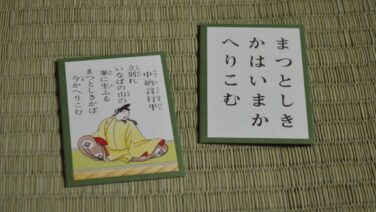 中納言行平
立別れ
いなばの山の
峯に生ふる
まつとしきかば
今かへりこむ
まつとしき
かはいまか
へりこむ